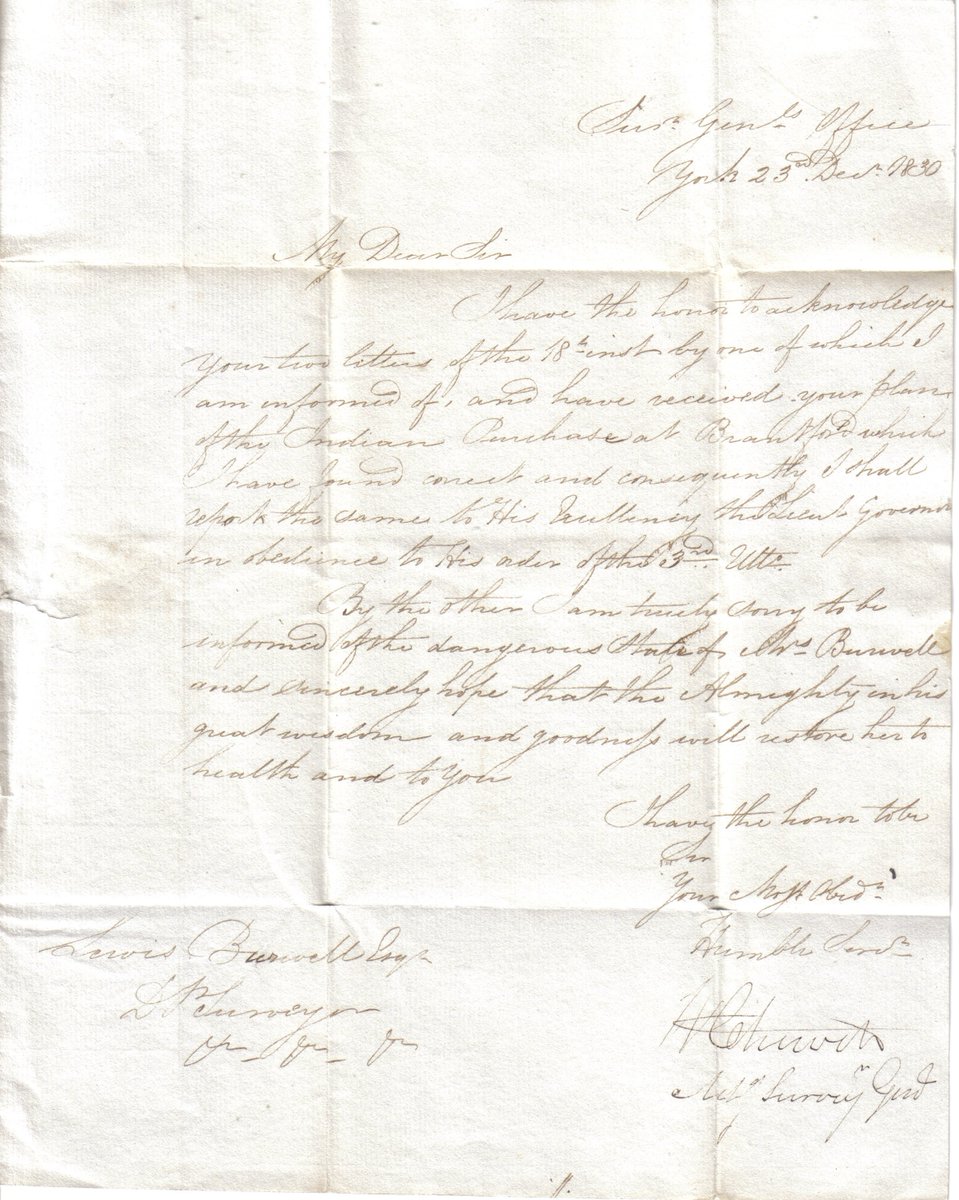 Surr. Genls Office
York 23rd Decr. 1830
My Dear Sir
I have the honor to acknowledge
your two letters of the 18th inst by one of which I
am informed of, and have received your plan
of the Indian Purchase at Brantford which
I have found correct and consequently I shall
report the same to His Excellency the Lieut Governor
in obedience to His order of the 3rd. Ulto.
By the other I am truly sorry to be
informed of the dangerous state of Mrs Burwell
and sincerely hope that the Almighty in his
great wisdom and goodness will restore her to
health and to you
I have the honor to be
Sir
Your Most Obedt
Humble Servt
Lewis Burwell Esqr
Dy Surveyor
Actg Surveyr Genl